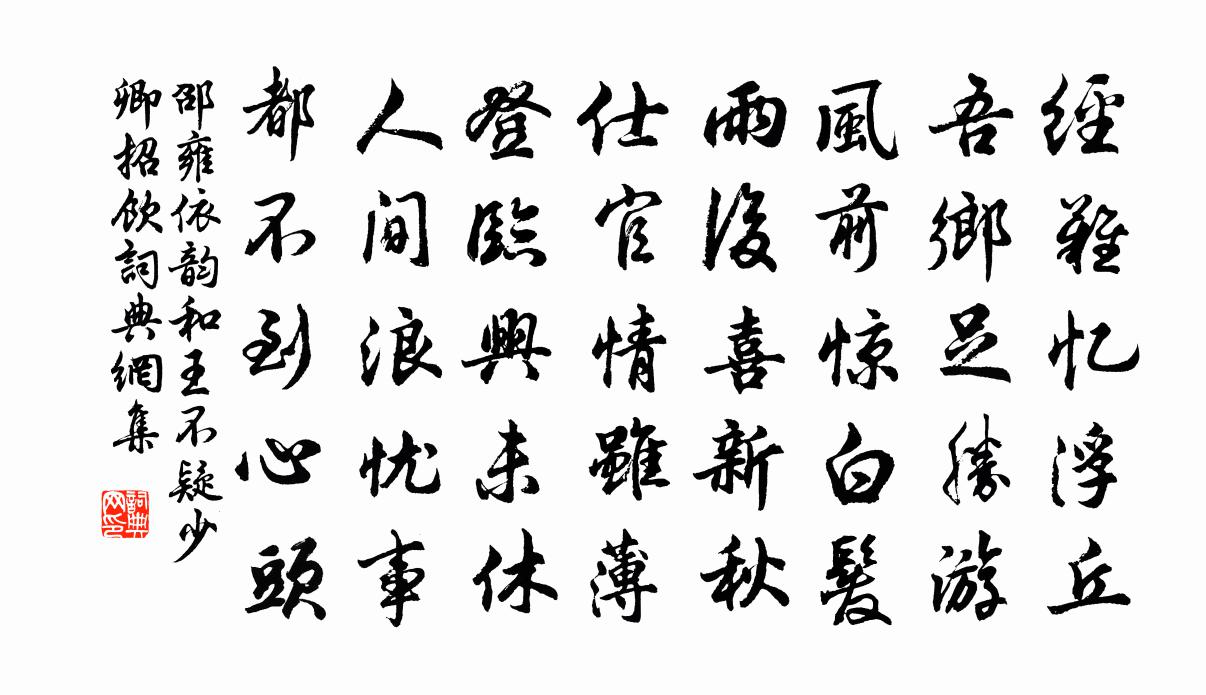 經難忆浮丘
吾鄉足勝游
風前惊白髮
雨後喜新秋
仕官情雖薄
登臨興未休
人间浪忧事
都不到心頭
邵雍依韵和王不疑少
卿招飲詞典網集
詞典
网印